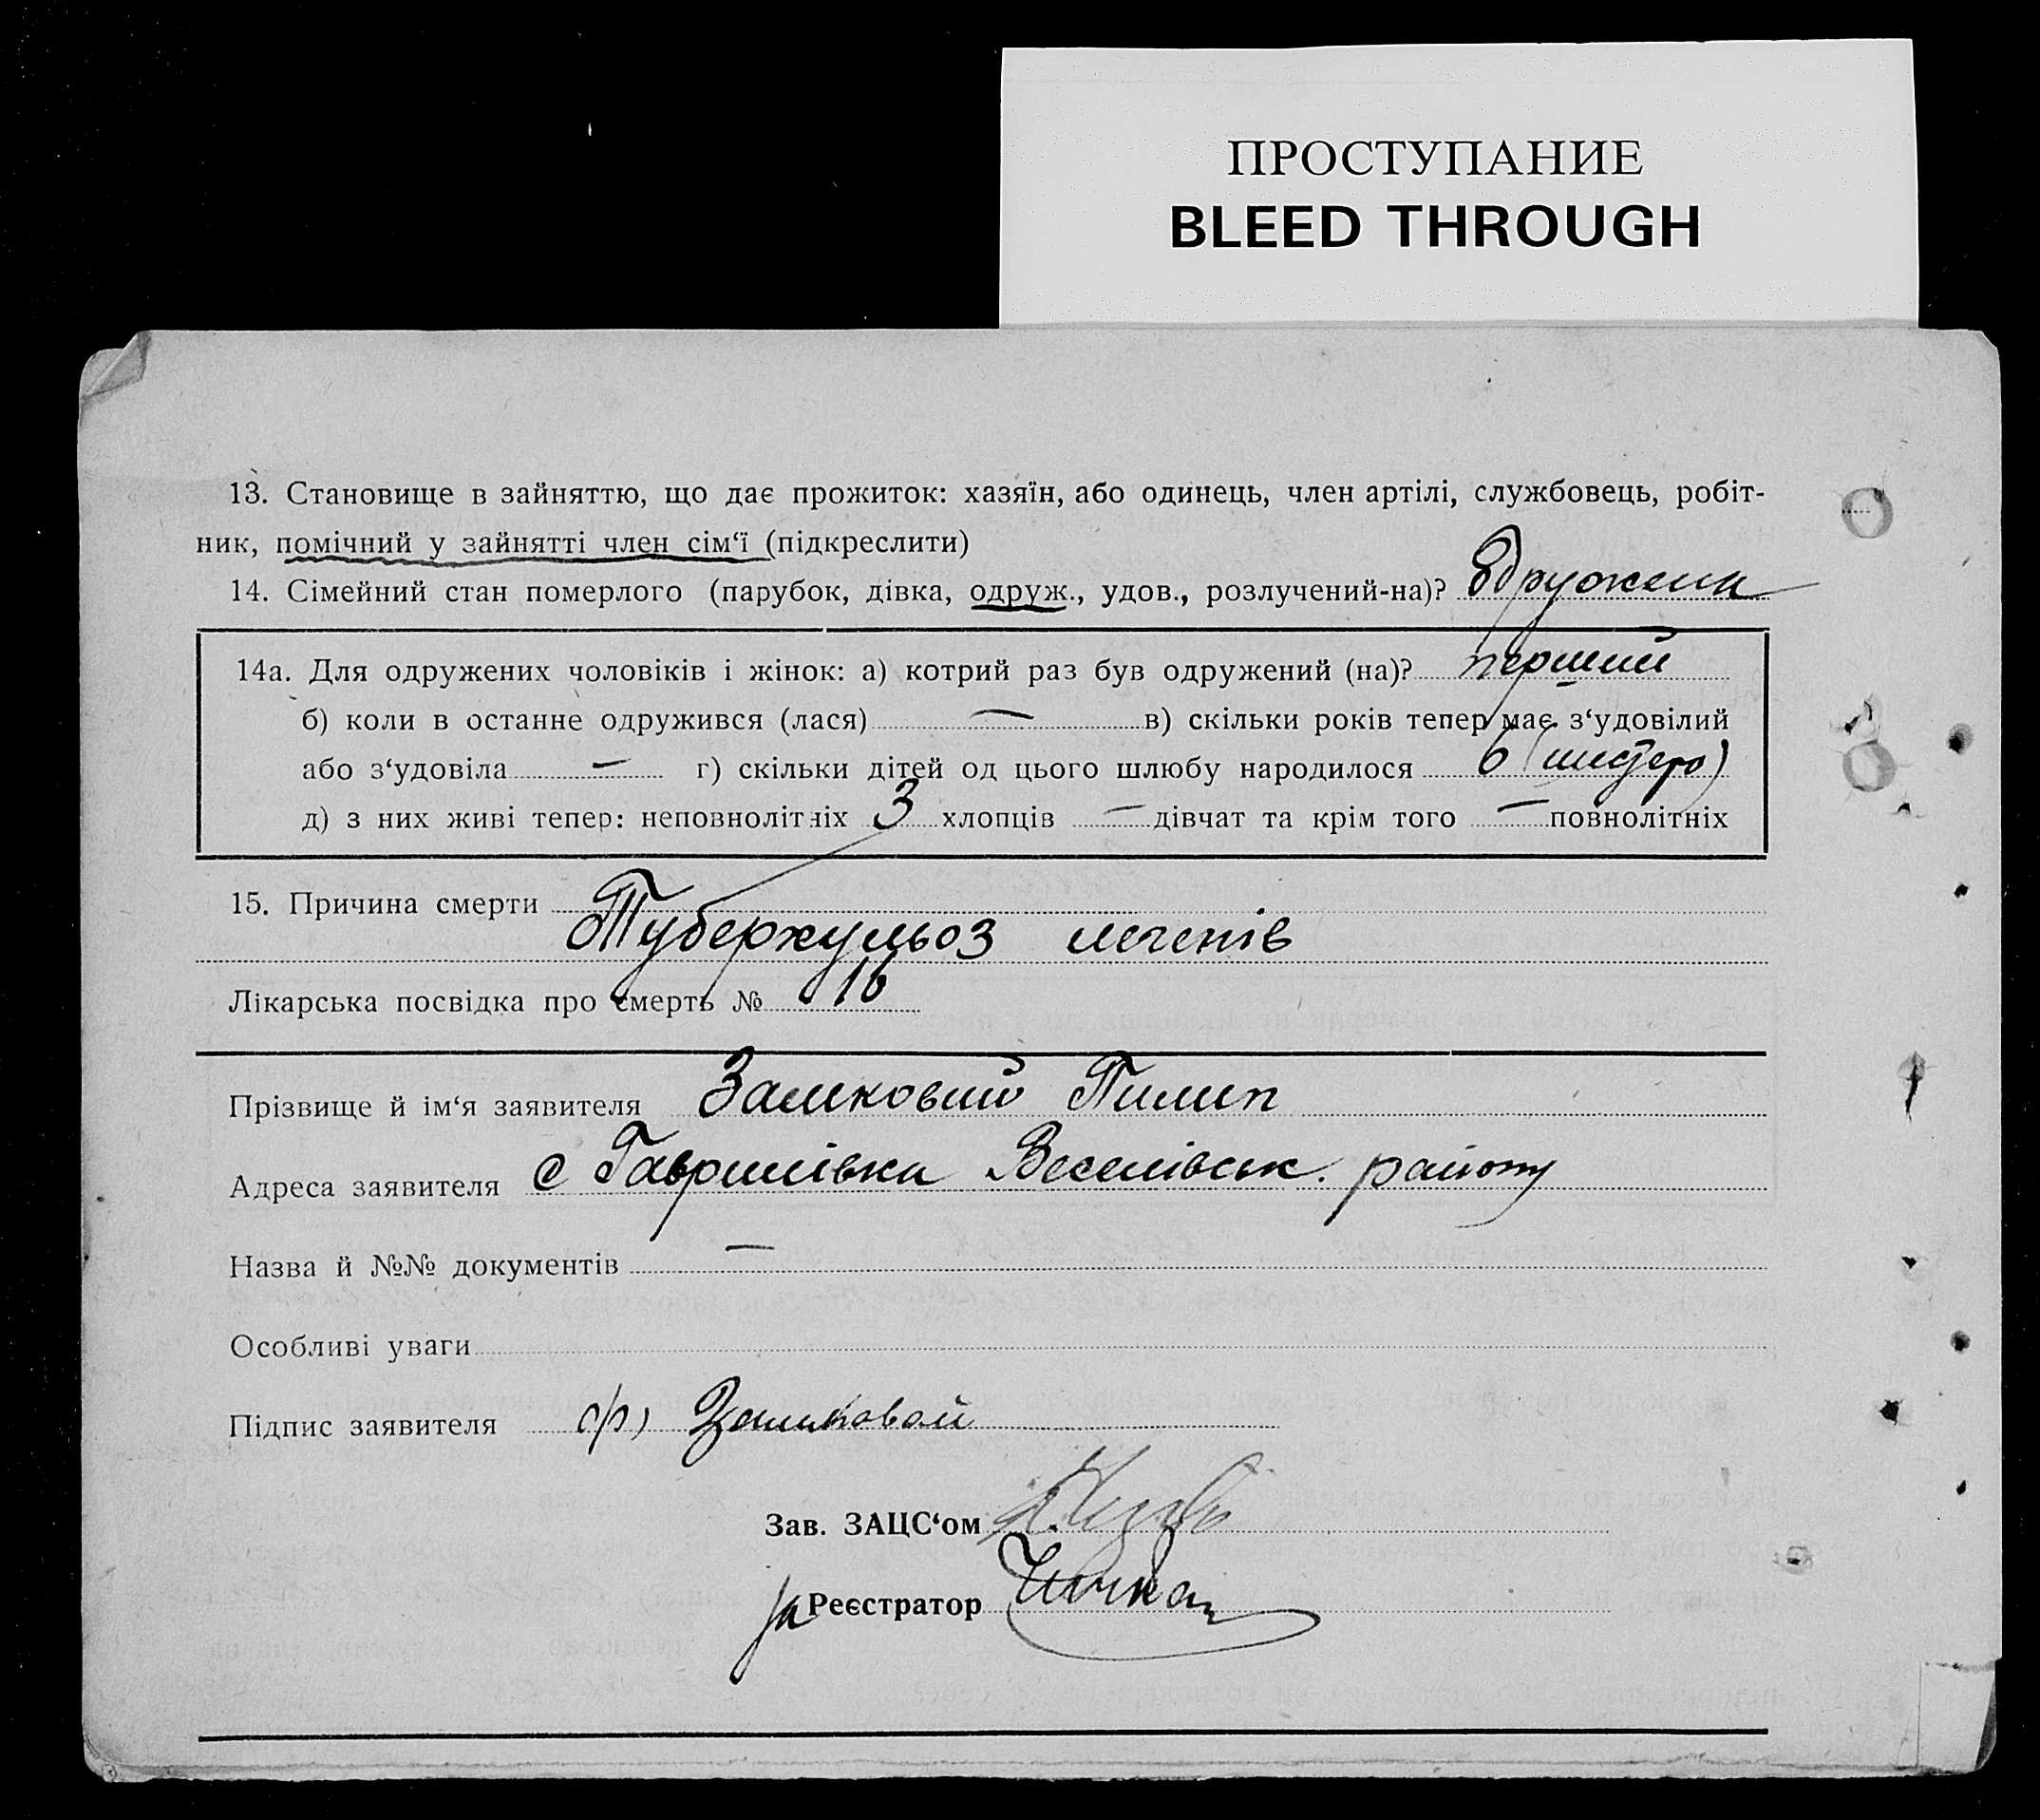 ПРОСТУПАНИЕ
BLEED THROUGH
13. Становище в зайняттю, що дає прожиток: хазяїн, або одинець, член артілі, службовець, робіт-
ник, помічний у зайнятті член сім‘ї (підкреслити)
14. Сімейний стан померлого (парубок, дівка, одруж., удов., розлучений-на)? Одружена
14а. Для одружених чоловіків і жінок: а) котрий раз був одружений (на)? перший
б) коли в останне одружився (лася) — в) скільки років тепер має з‘удовілий
або з‘удовіла — г) скільки дітей од цього шлюбу народилося 6 (шестеро)
д) з них живі тепер: неповнолітніх 3 хлопців — дівчат та крім того — повнолітніх
15. Причина смерти
Туберкульоз легенів
Лікарська посвідка про смерть № 16
Прізвище й ім‘я заявителя Замковий Пилип
Адреса заявителя с Гаврилівка Веселівськ. району
Назва й №№ документів —
Особливі уваги
Підпис заявителя Замковой
Зав. ЗАЦС‘ом
за Реєстратор